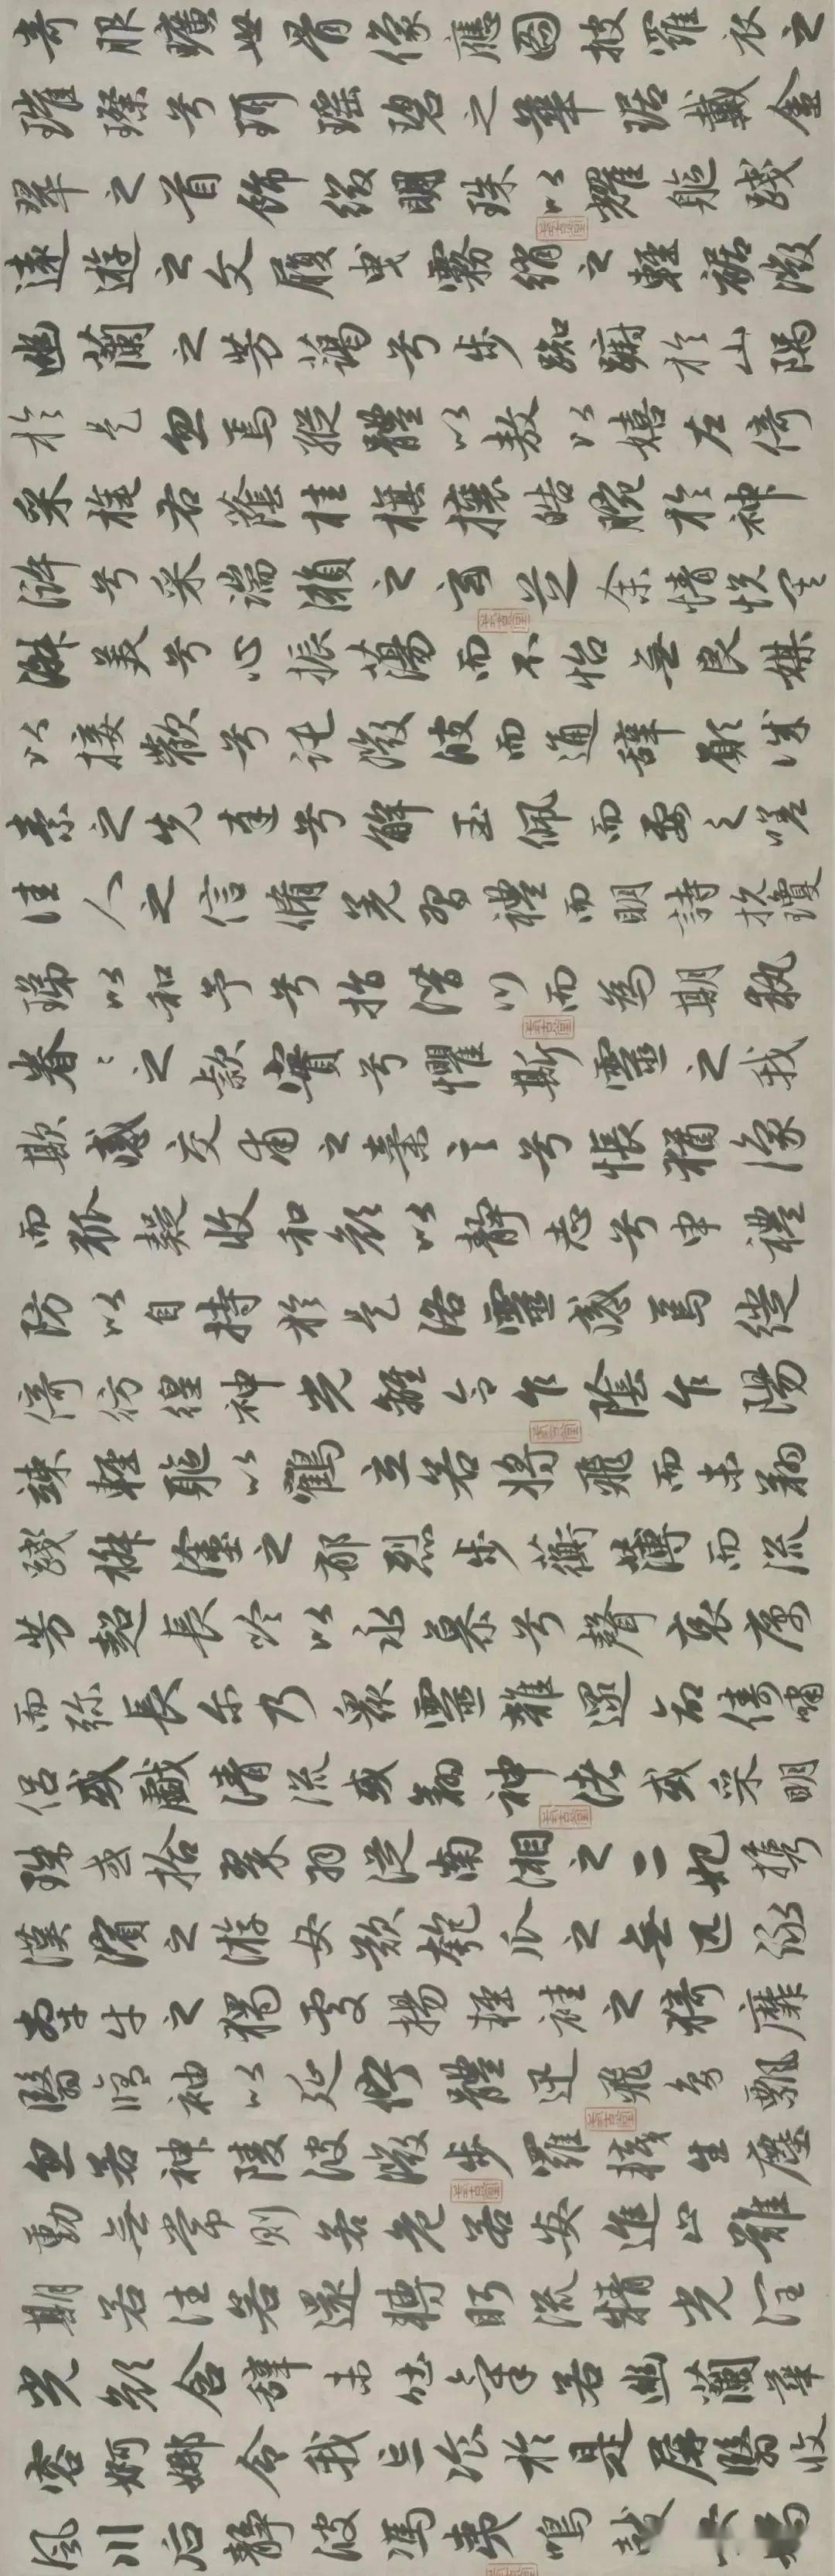 奇服曠世骨像應圖披羅衣之
璀璨兮珥瑤碧之華琚戴金
翠之首飾綴明珠以耀軀踐
遠遊之文履曳霧綃之輕裾微
幽蘭之芳藹兮步踟躕於山隅
於是忽焉縱體以敖以嬉左倚
采旄右蔭桂旗攘皓腕於神
滸兮采湍瀨之玄芝余情悅其
淑美兮心振蕩而不怡無良媒
以接歡兮託微波而通辭願誠
素之先達兮解玉佩而要之嗟
佳人之信脩羌習禮而明詩抗瓊
珶以和予兮指潛川而為期執
眷〻之款實兮懼斯靈之我
欺感交甫之棄言兮悵猶豫
而狐疑收和顏以靜志兮申禮
防以自持於是洛靈感焉徙
倚彷徨神光離合乍陰乍陽
竦輕軀以鶴立若將飛而未翔
踐椒塗之郁烈步蘅薄而流
芳超長吟以永慕兮聲哀厲
而彌長尔乃眾靈雜遝命儔嘯
侶或戲清流或翔神渚或采明
珠或拾翠羽從南湘之二妃攜
漢濱之游女歎匏瓜之無匹詠
牽牛之獨處揚輕袿之猗靡
翳脩袖以延佇體迅飛鳧飄
忽若神陵波微步羅襪生塵
動無常則若危若安進止難
期若往若還轉眄流精光
顏含辭未吐氣若幽蘭華
容婀娜令我忘飡於是屏翳收
風川后靜波馮夷鳴鼓